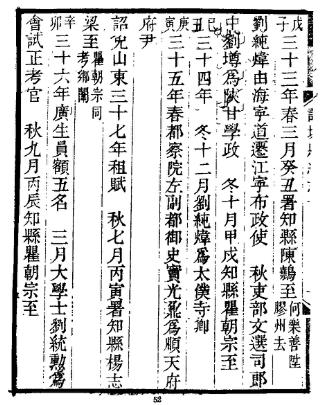 戊子三十三年春三月癸丑署知縣陳鶴至何樂善陞膠州去
劉純煒由海寧道遷江寧布政使　秋吏部文選司郎
中劉墫爲陝甘學政　冬十月甲戌知縣瞿朝宗至
己丑三十四年　冬十二月劉純煒爲太僕寺卿
庚寅三十五年春都察院左副都御史竇光鼐爲順天府
府尹
詔免山東三十七年租賦　秋七月丙寅署知縣楊志
梁至瞿朝宗同考鄉闈
辛卯三十六年廣生員額五名　三月大學士劉統勳爲
會試正考官　秋九月丙辰知縣瞿朝宗至
52